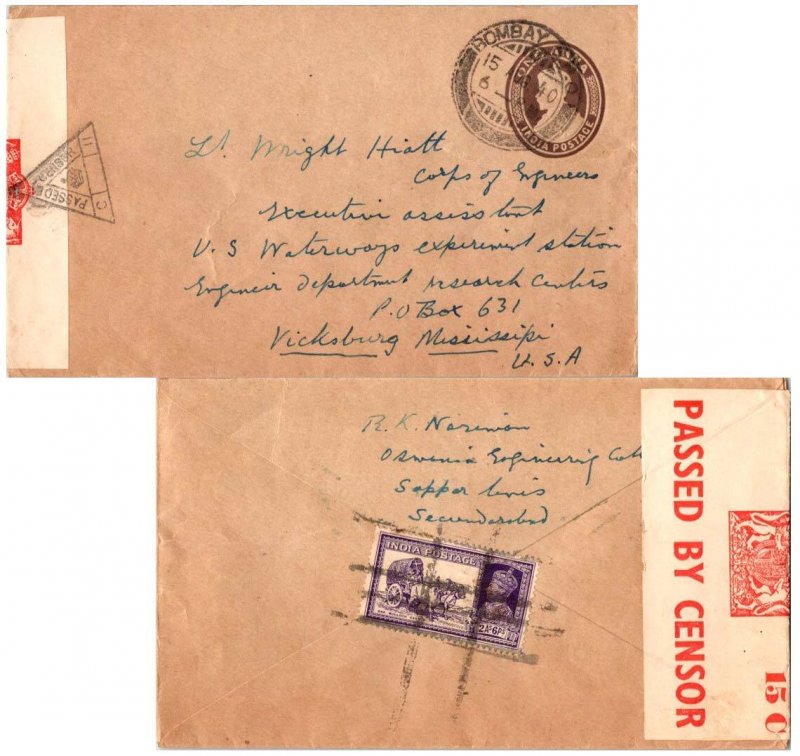 BOMBAY
15
6
40
INDIA POSTAGE
PASSED
11
C
Lt. Wright Hiatt
Corps of Engineers
Executive assisstent
U.S Waterways experiment station
Engineer department research centers
P.O Box 631
Vicksburg Mississipi
U.S.A
R.K. Nariman
Oswania Engineering
Sapper lines
Secunderabad
INDIA POSTAGE
2As6Ps
PASSED BY CENSOR
15 C